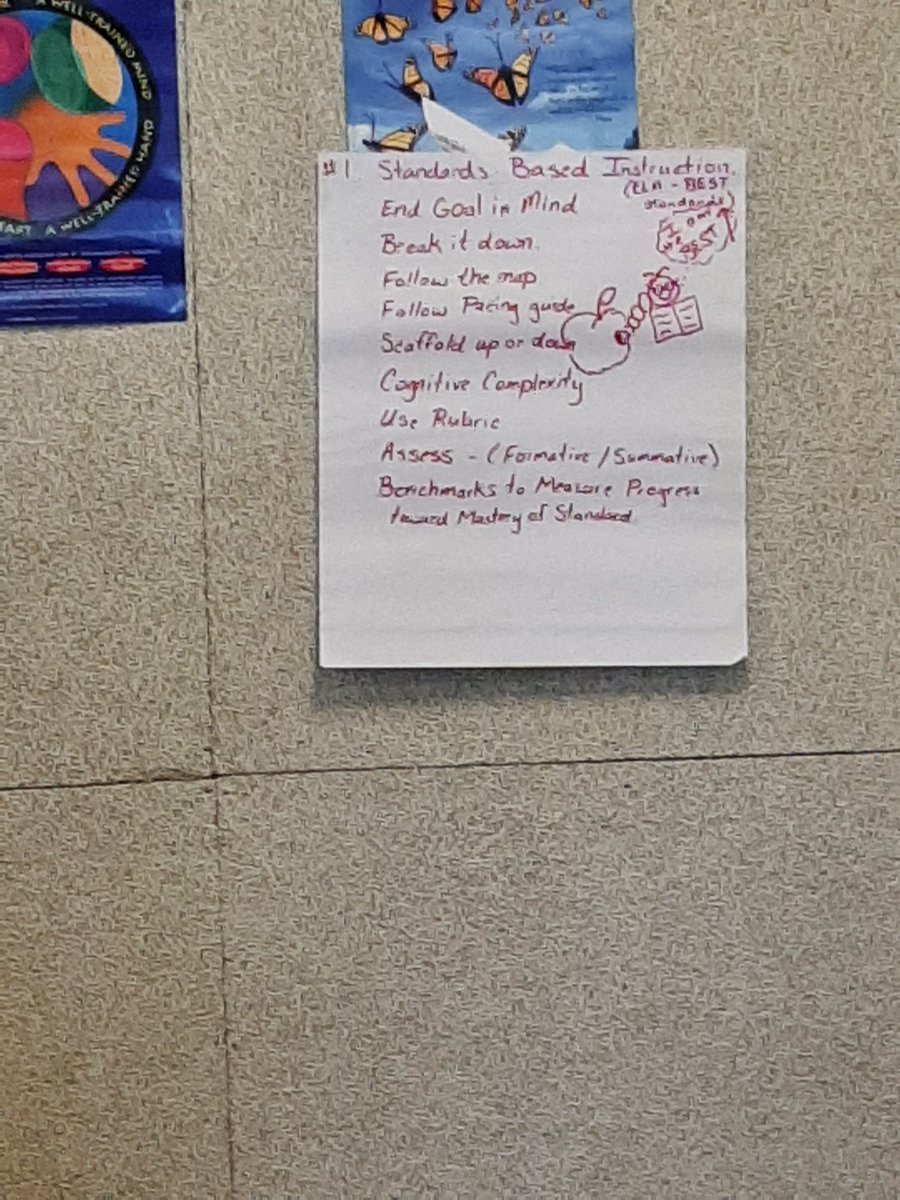 A WELL-TRAINED MIND
A WELL-TRAINED HAND
#1 Standards Based Instruction.
(ELA - BEST
Standards)
End Goal in Mind
Break it down.
Follow the map
Follow Pacing guide
Scaffold up or down
Cognitive Complexity
Use Rubric
Assess - (Formative / Summative)
Benchmarks to Measure Progress
toward Mastery of Standard.